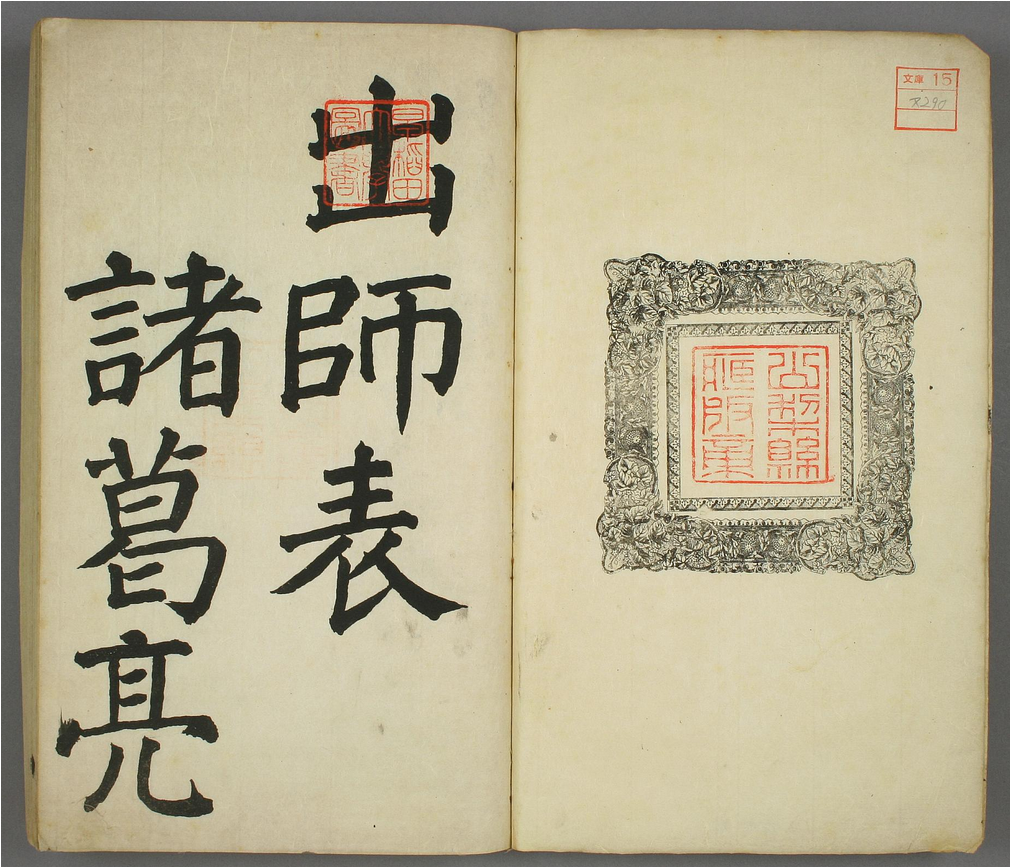 文庫 15
早稻田
大學
圖書
出師表
諸葛亮